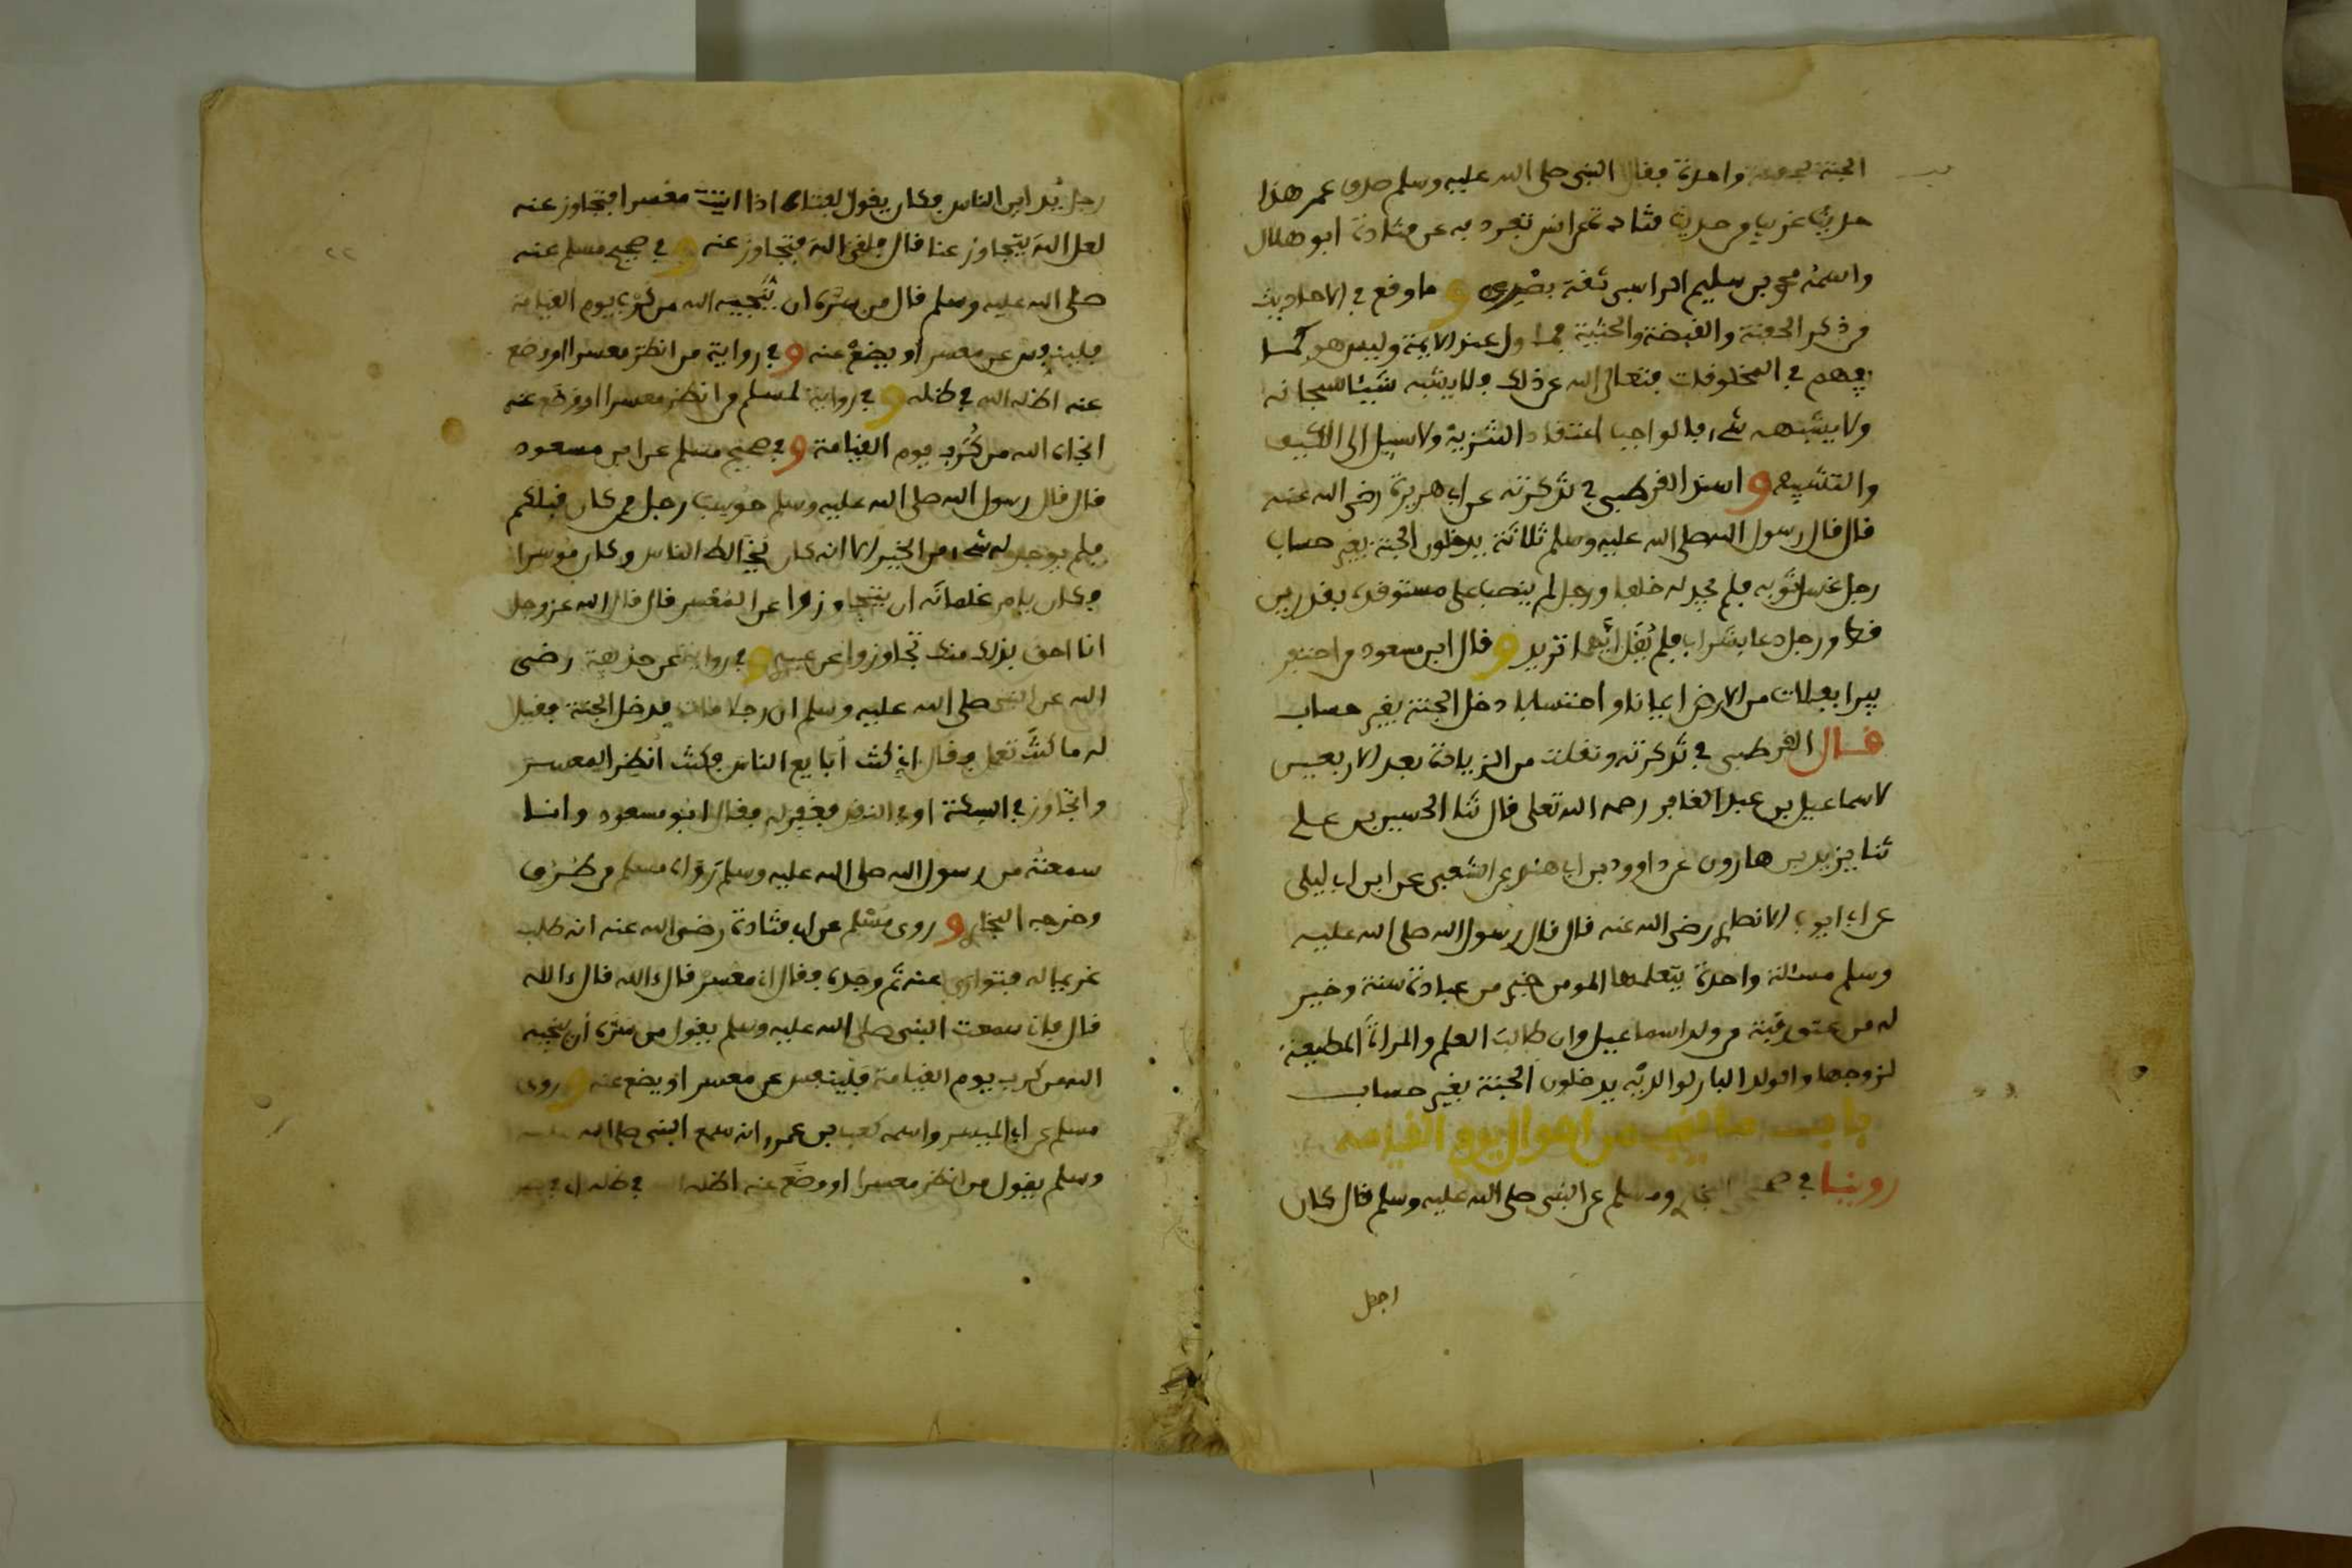 الجنة بحفنة واحدة فقال النبي صلى الله عليه وسلم صدق عمر هذا
حديث غريب من حديث قتادة عن انس تفرد به عن قتادة ابو هلال
واسمه محمد بن سليم الراسبي ثقة بصري وما وقع في الاحاديث
من ذكر الحفنة والقبضة والحثية مما ول عند الايمة وليس هو كما
يفهم في المخلوقات فتعالى الله عن ذلك فلا يشبه شيئا سبحانه
ولا يشبهه شيء فالواجب اعتقاد التنزيه ولا سبيل الى التكييف
والتشبيه واسند القرطبي في تذكرته عن ابي هريرة رضي الله عنه
قال قال رسول الله صلى الله عليه وسلم ثلاثة يدخلون الجنة بغير حساب
رجل غسل ثوبه فلم يجد له خلفا ورجل لم ينصب على مستوقده بقدرين
قط ورجل دعا بشراب فلم يقل ايهما تريد وقال ابن مسعود من احتفر
بيرا بفلات من الارض ايمانا واحتسابا دخل الجنة بغير حساب
قال القرطبي في تذكرته ونقلت من الزيادة بعد الاربعين
لاسماعيل بن عبد الغافر رحمه الله تعلى قال ثنا الحسين بن علي
ثنا يزيد بن هارون عن داوود بن ابي هند عن الشعبي عن ابن ابي ليلى
عن ابي ايوب الانصاري رضي الله عنه قال قال رسول الله صلى الله عليه
وسلم مسئلة واحدة يتعلمها المومن خير من عبادة سنة وخير
له من عتق رقبة من ولد اسماعيل وان طالب العلم والمراة المطيعة
لزوجها والولد البار لوالديه يدخلون الجنة بغير حساب
باب ما ينجي من اهوال يوم القيامة
روينا في صحيحي البخاري ومسلم عن النبي صلى الله عليه وسلم قال كان
رجل يداين الناس فكان يقول لفتاه اذا اتيت معسرا فتجاوز عنه
لعل الله يتجاوز عنا قال فلقي الله فتجاوز عنه وفي صحيح مسلم عنه
صلى الله عليه وسلم قال من سره ان ينجيه الله من كرب يوم القيامة
فلينفس عن معسر او يضع عنه وفي رواية من انظر معسرا او وضع
عنه اظله الله في ظله وفي رواية لمسلم من انظر معسرا او وضع عنه
انجاه الله من كرب يوم القيامة وفي صحيح مسلم عن ابن مسعود
قال قال رسول الله صلى الله عليه وسلم حوسب رجل ممن كان قبلكم
فلم يوجد له شيء من الخير الا انه كان يخالط الناس وكان موسرا
فكان يامر غلمانه ان يتجاوزوا عن المعسر قال قال الله عز وجل
انا احق بذلك منك تجاوزوا عن عبدي وفي رواية عن حذيفة رضي
الله عن النبي صلى الله عليه وسلم ان رجلا مات فدخل الجنة فقيل
له ما كنت تعمل فقال اني كنت أبايع الناس فكنت أنظر المعسر
واتجاوز في السكة او في النقد فغفر له فقال ابو مسعود وانا
سمعته من رسول الله صلى الله عليه وسلم رواه مسلم من طرق
وخرجه البخاري وروى مسلم عن ابي قتادة رضي الله عنه انه طلب
غريما له فتوارى عنه ثم وجده فقال اني معسر قال ءالله قال ءالله
قال فاني سمعت النبي صلى الله عليه وسلم يقول من سره أن ينجيه
الله من كرب يوم القيامة فلينفس عن معسر او يضع عنه وروى
مسلم عن ابي اليسر واسمه كعب بن عمرو انه سمع النبي صلى الله عليه
وسلم يقول من انظر معسرا او وضع عنه اظله الله في ظله